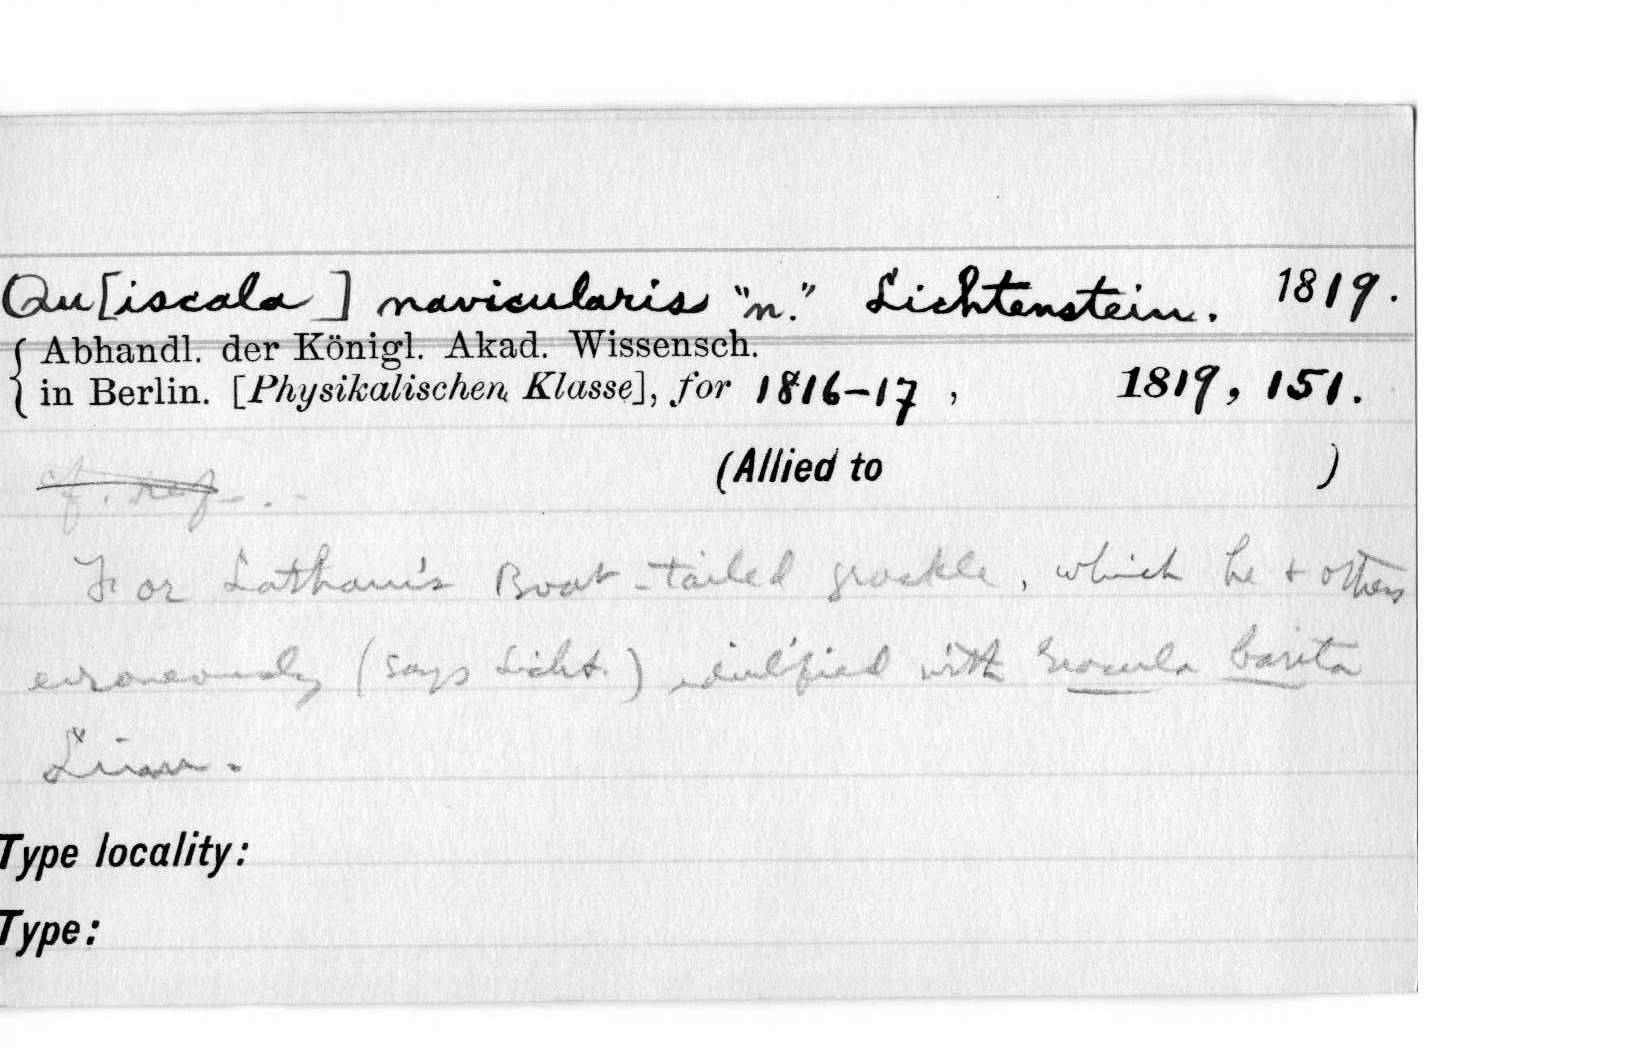 Qu[iscala] navicularis "n." Lichtenstein. 1819.
Abhandl. der Königl. Akad. Wissensch.
in Berlin. [Physikalischen Klasse], for 1816-17, 1819, 151.
cf. ref. (Allied to )
For Latham's Boat-tailed grackle, which he + others
erroneously (says Licht.) ident'fied with Gracula barita
Linn.
Type locality:
Type: